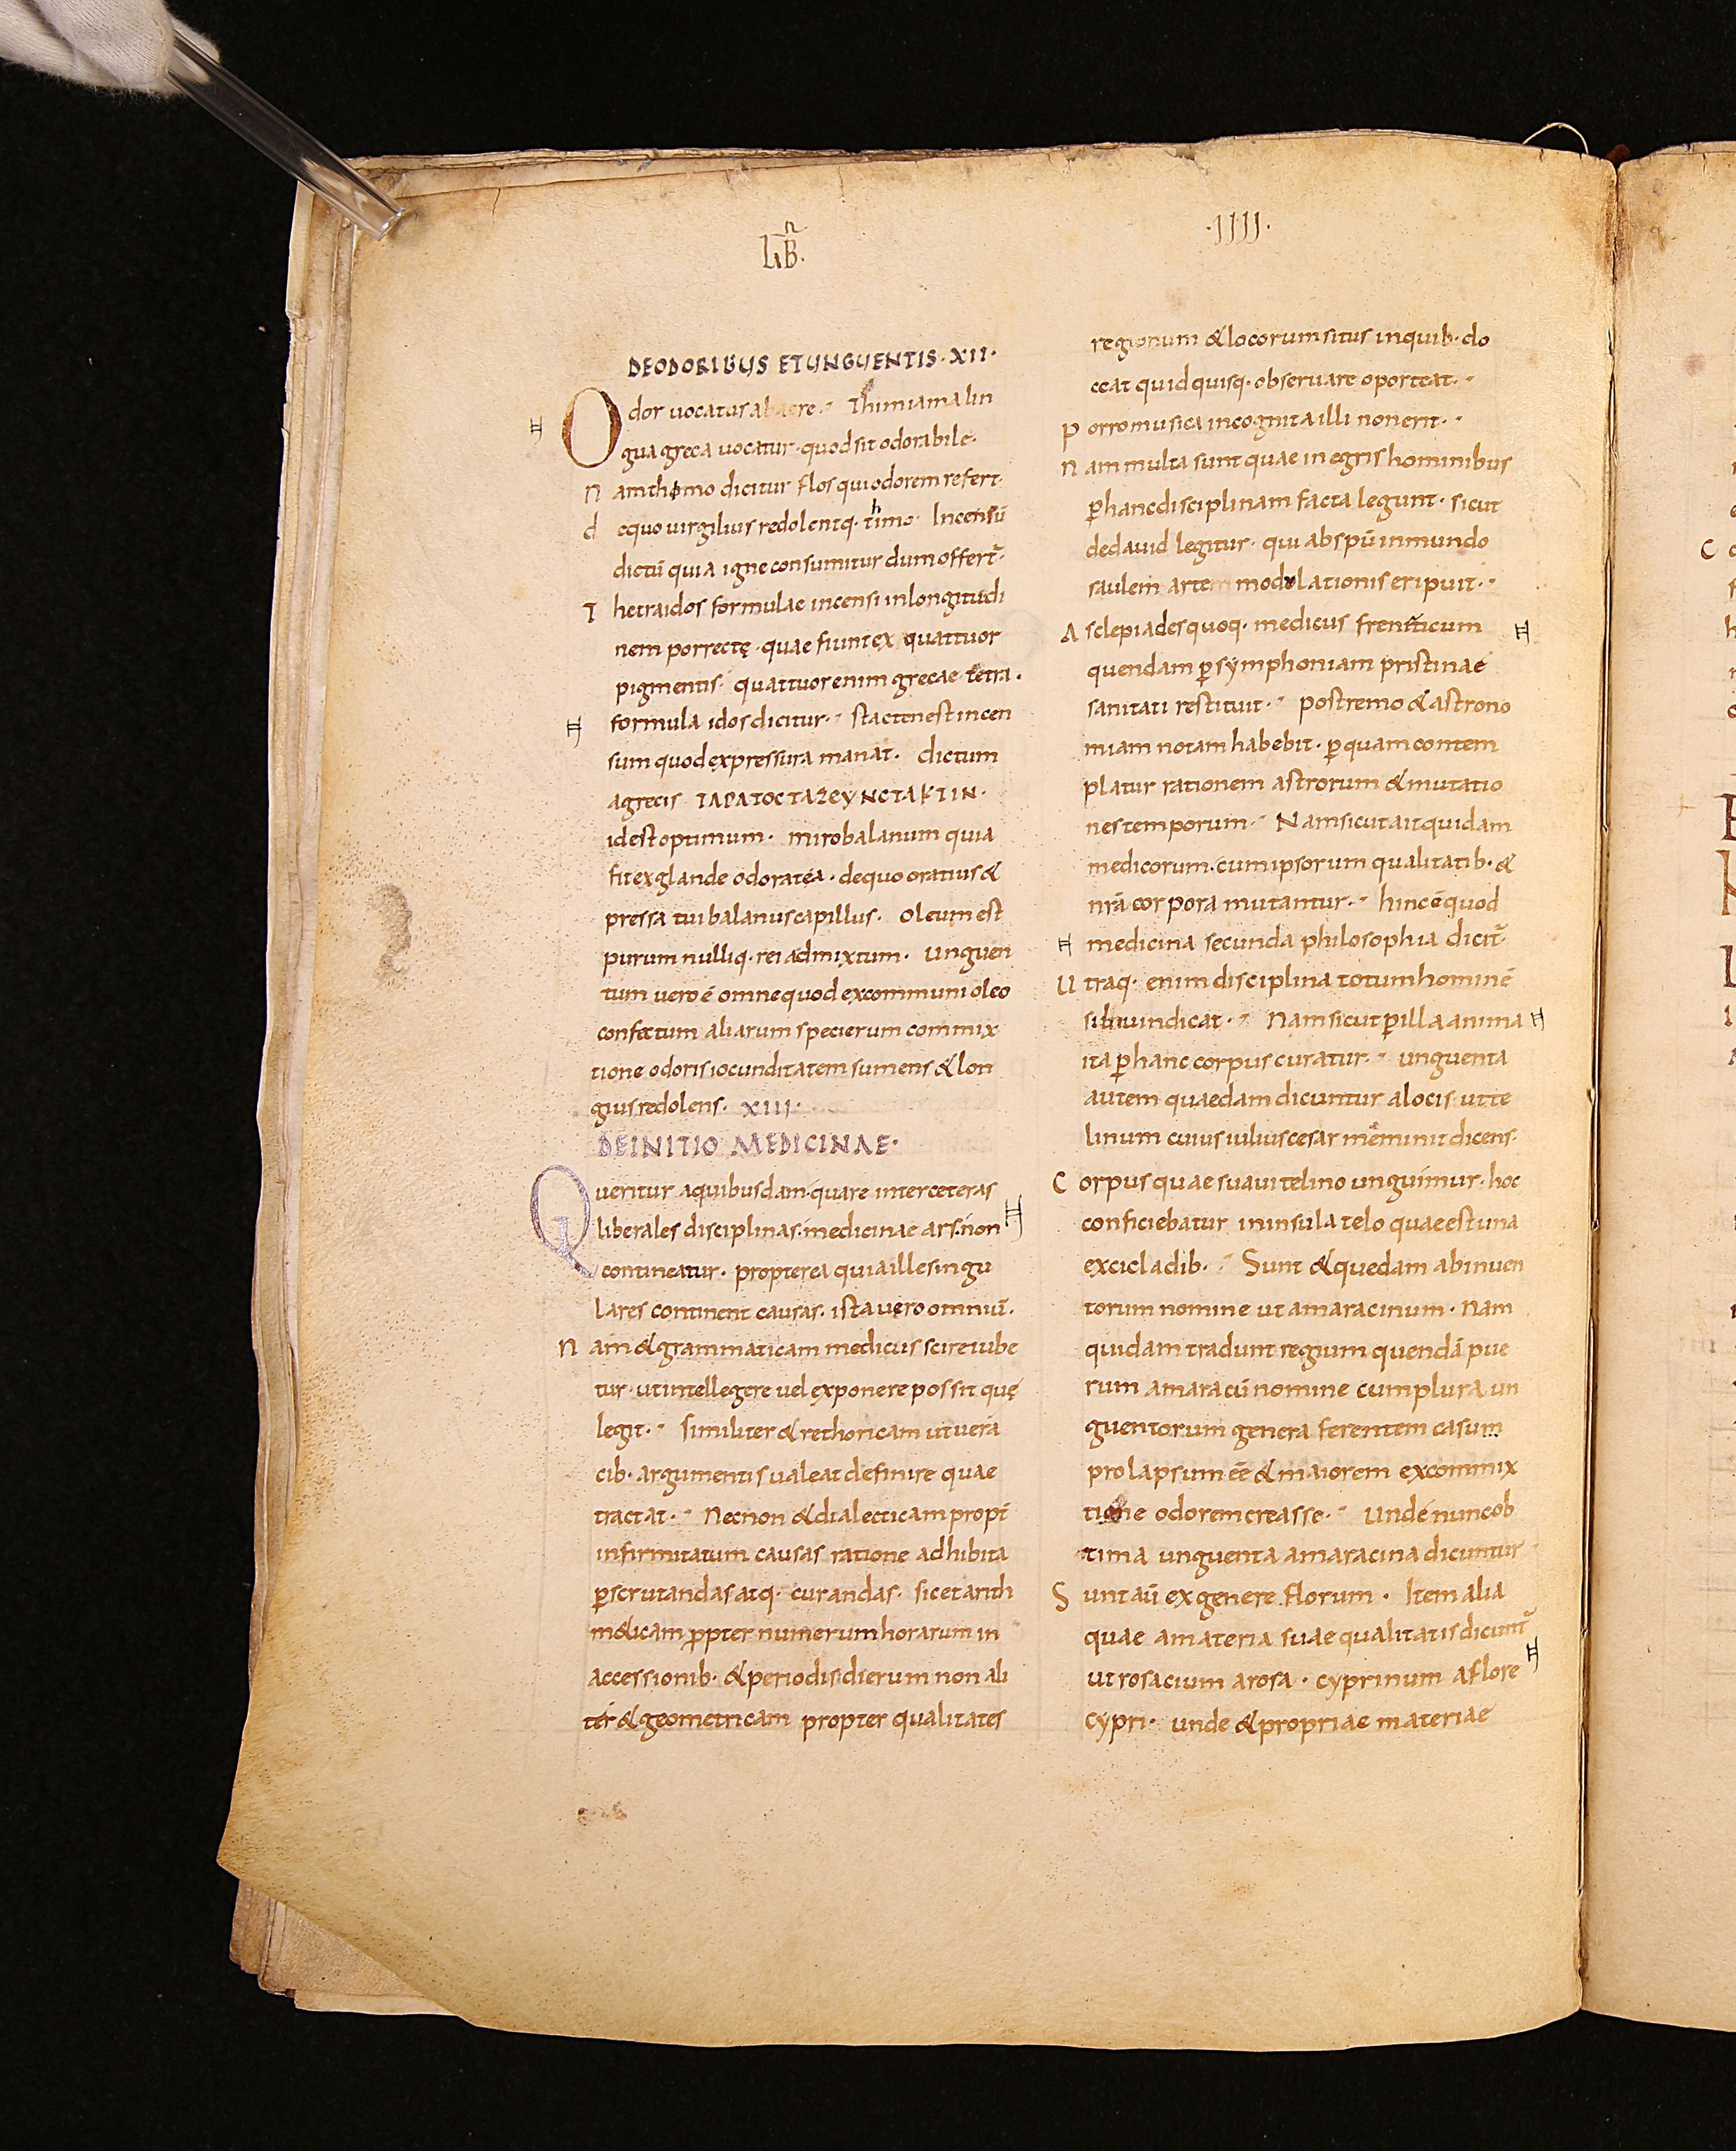 LIB̃.
·IIII·
DEODORIBUS ET UNGUENTIS·XII·
Odor uocatus ab aere· Thimiama lin
gua greca uocatur· quod sit odorabile·
Nam thimo dicitur flos qui odorem refert·
dequo uirgilius redolentq· thimo· Incensū
dictū quia igne consumitur dum offert̄·
Thetraidos formulae incensi inlongitudi
nem porrectę· quae fiunt ex quattuor
pigmentis· quattuor enim grecae tetra·
formula idos dicitur· stacten est incen
sum quod expressura manat· dictum
agrecis
id est optimum· mirobalanum quia
fit ex glande odoratea· dequo oratius &
pressa tui balanus capillus· Oleum est
purum nulliq· rei admixtum· Unguen
tum uero ē omne quod excommuni oleo
confectum aliarum specierum commix
tione odoris iocunditatem sumens & lon
gius redolens· XIII·
DEINITIO MEDICINAE·
Queritur aquibusdam· quare inter ceteras
liberales disciplinas· medicinae ars· non
contineatur· propterea quia ille singu
lares continent causas· ista uero omniū·
Nam & grammaticam medicus scire iube
tur· ut intellegere uel exponere possit quę
legit· similiter & rethoricam ut uera
cib· argumentis ualeat definire quae
tractat· Necnon & dialecticam propt̄
infirmitatum causas ratione adhibita
p̄scrutandas atq· curandas· sic et arith
m&icam propter numerum horarum in
accessionib· & periodis dierum non ali
ter & geometricam propter qualitates
regionum & locorum situs inquib· do
ceat quid quisq· obseruare oporteat·
Porro musica incognita illi non erit·
Nam multa sunt quae in egris hominibus
p̄ hanc disciplinam facta legunt· sicut
dedauid legitur· qui ab spū inmundo
saulem artem modolationis eripuit·
Asclepiades quoq· medicus freniticum
quendam p̄ symphoniam pristinae
sanitati restituit· postremo & astrono
miam notam habebit· p̄ quam contem
platur rationem astrorum & mutatio
nes temporum· Nam sicut ait quidam
medicorum· cum ipsorum qualitatib· &
nr̄a corpora mutantur· hinc ē quod
medicina secunda philosophia dicit̄·
Utraq· enim disciplina totum hominē
sibi uindicat· Nam sicut p̄ illa anima
ita p̄ hanc corpus curatur· unguenta
autem quaedam dicuntur alocis ut te
linum cuius iulius cesar meminit dicens·
Corpus quae suaui telino unguimur· hoc
conficiebatur in insula telo quae est una
excicladib· Sunt & quedam ab inuen
torum nomine ut amaracinum· Nam
quidam tradunt regium quendā pue
rum amaracū nomine cum plura un
guentorum genera ferentem casum
prolapsum eē & maiorem excommix
tione odorem creasse· Unde nunc ob
tima unguenta amaracina dicuntur
Sunt aū ex genere florum· Item alia
quae amateria suae qualitatis dicunt̄
ut rosacium arosa· cyprinum aflore
cypri· unde & propriae materiae